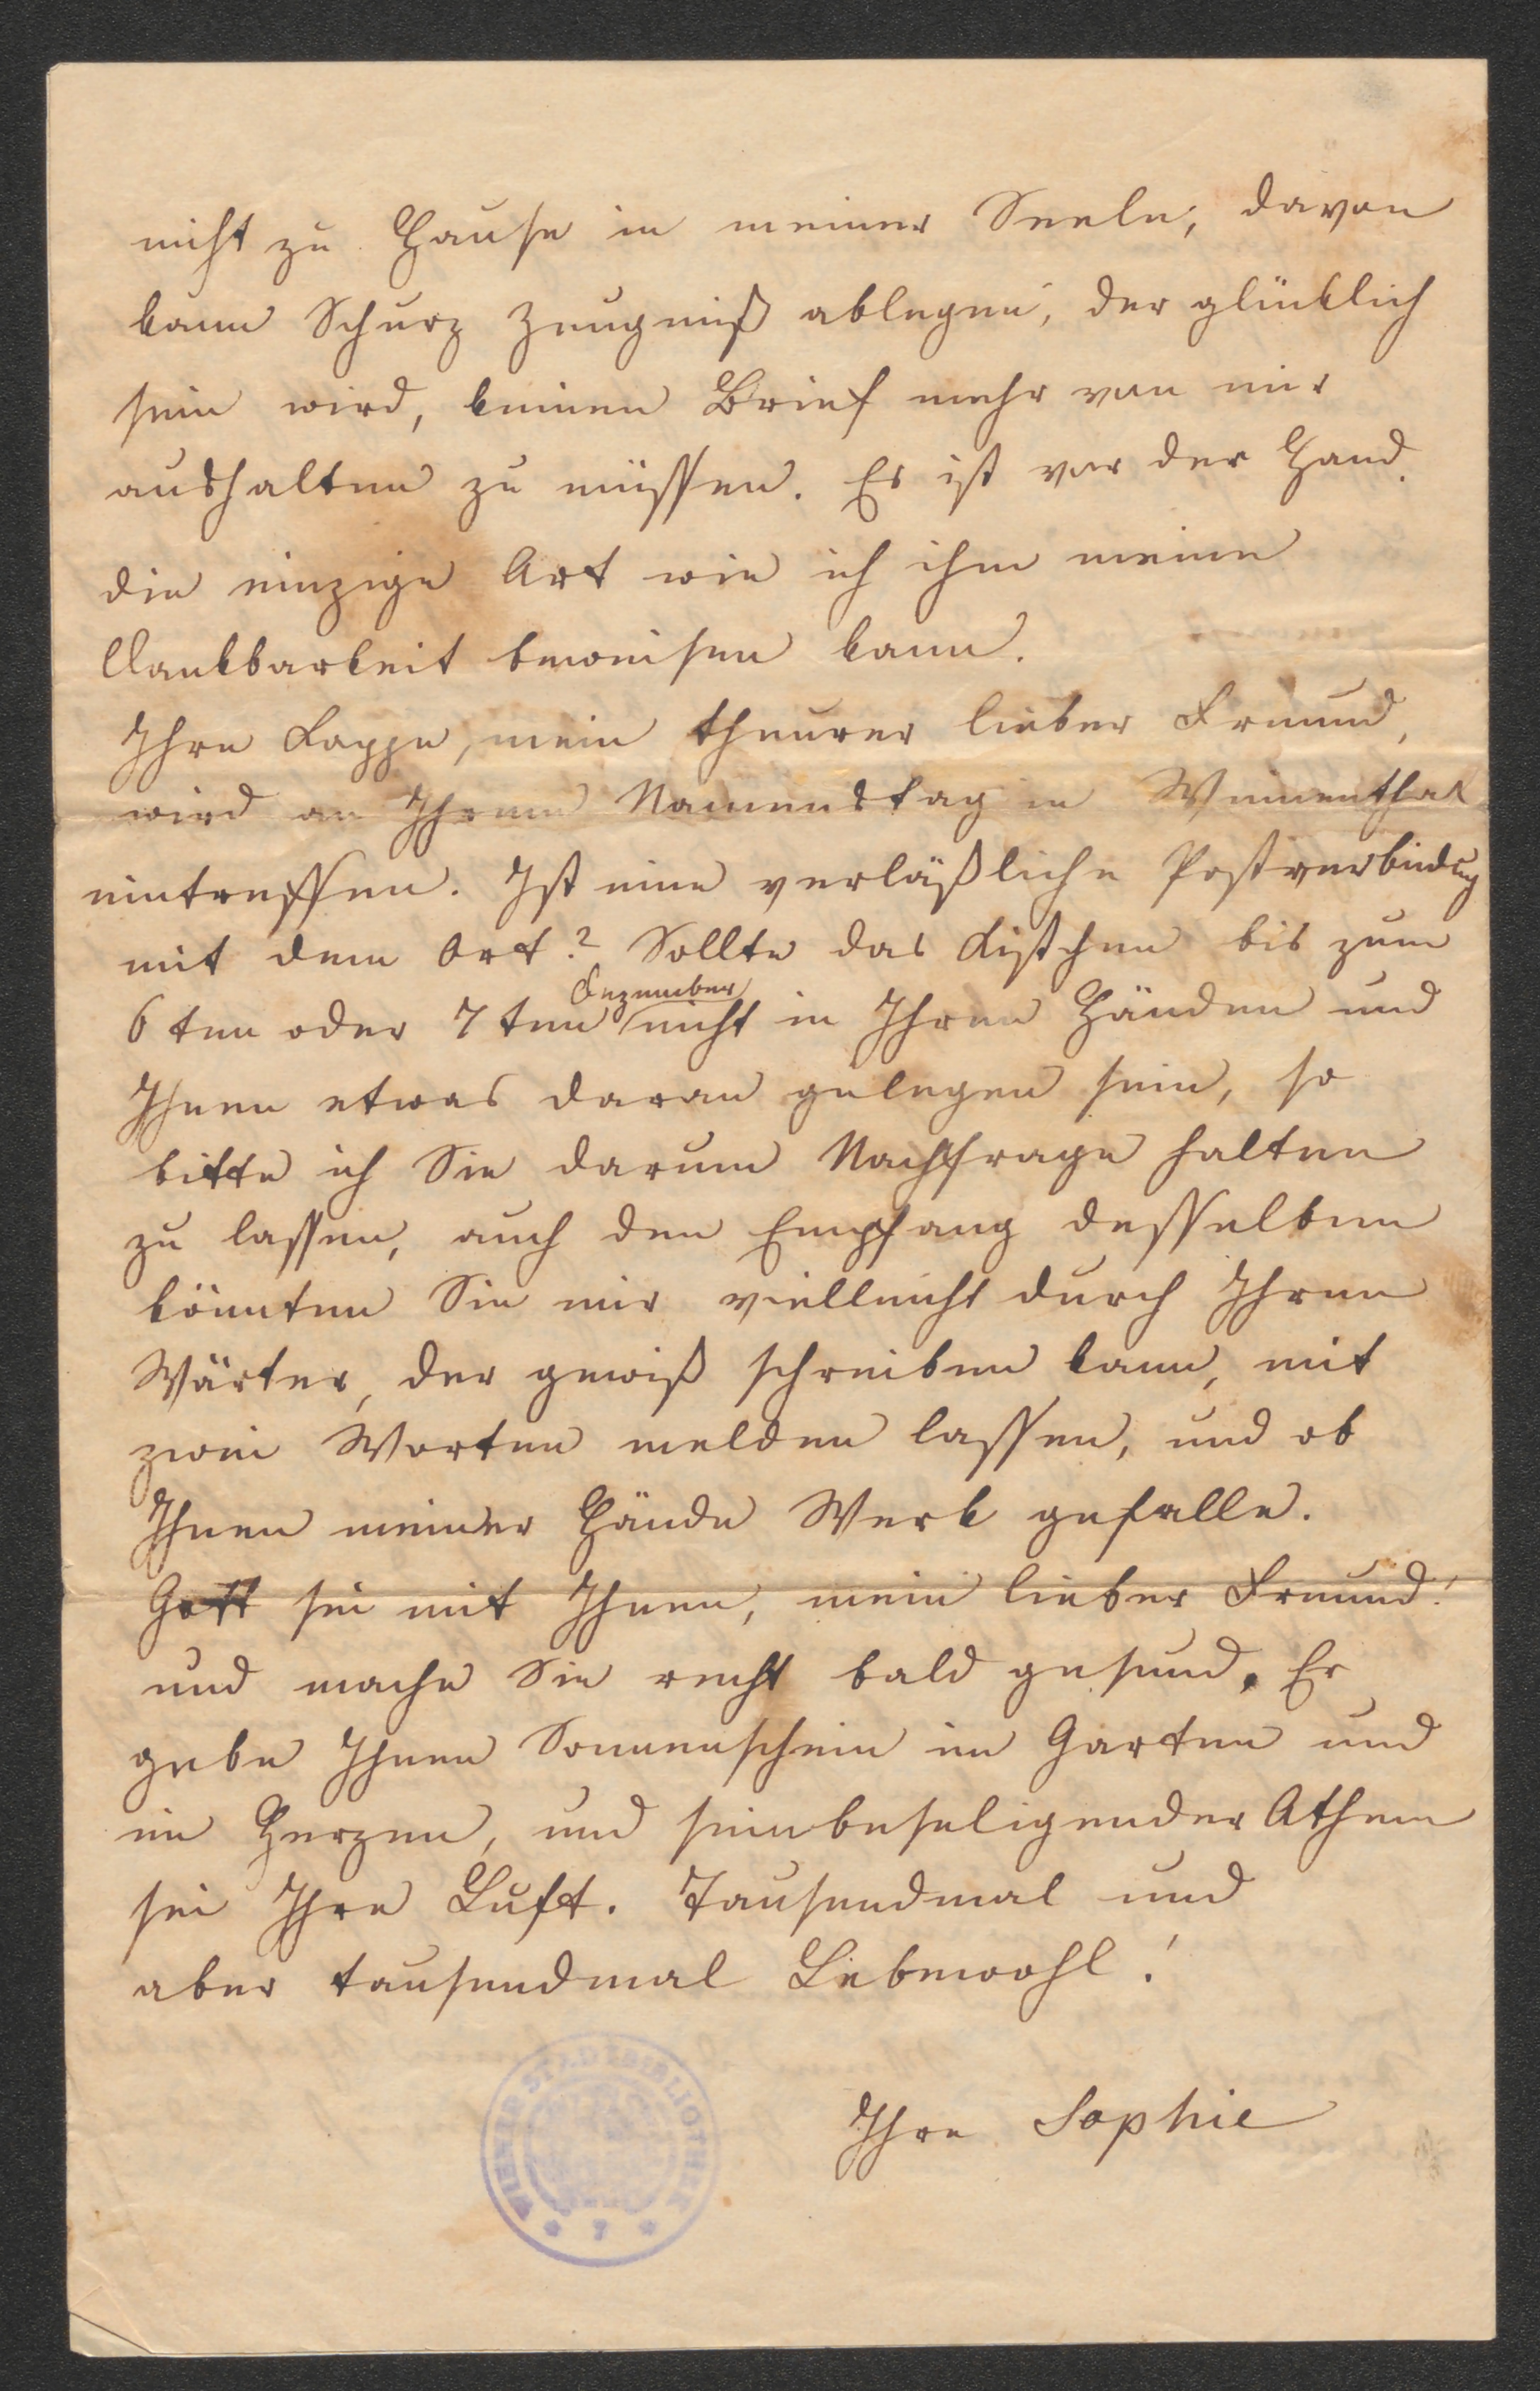 nicht zu Hause in meiner Seele, davon
kann Schurz Zeugniß ablegen, der glücklich
sein wird, keinen Brief mehr von mir
aushalten zu müssen. Es ist vor der Hand
die einzige Art wie ich ihm meine
Dankbarkeit beweisen kann.
Ihre Kappe, mein theurer lieber Freund,
wird an Ihrem Namenstag in Winnenthal
eintreffen. Ist eine verläßliche Postverbindung
mit dem Ort? Sollte das Kistchen bis zum
Dezember
6ten oder 7ten nicht in Ihren Händen und
Ihnen etwas daran gelegen sein, so
bitte ich Sie darum Nachfrage halten
zu lassen, auch den Empfang desselben
könnten Sie mir vielleicht durch Ihren
Wärter, der gewiß schreiben kann, mit
zwei Worten melden lassen, und ob
Ihnen meiner Hände Werk gefalle.
Gott sei mit Ihnen, mein lieber Freund!
und mache Sie recht bald gesund. Er
gebe Ihnen Sonnenschein im Garten und
im Herzen, und sein beseligender Athem
sei Ihre Luft. Tausendmal und
aber tausendmal Lebewohl!
Ihre Sophie
WIENER STADTBIBLIOTHEK
* 7 *